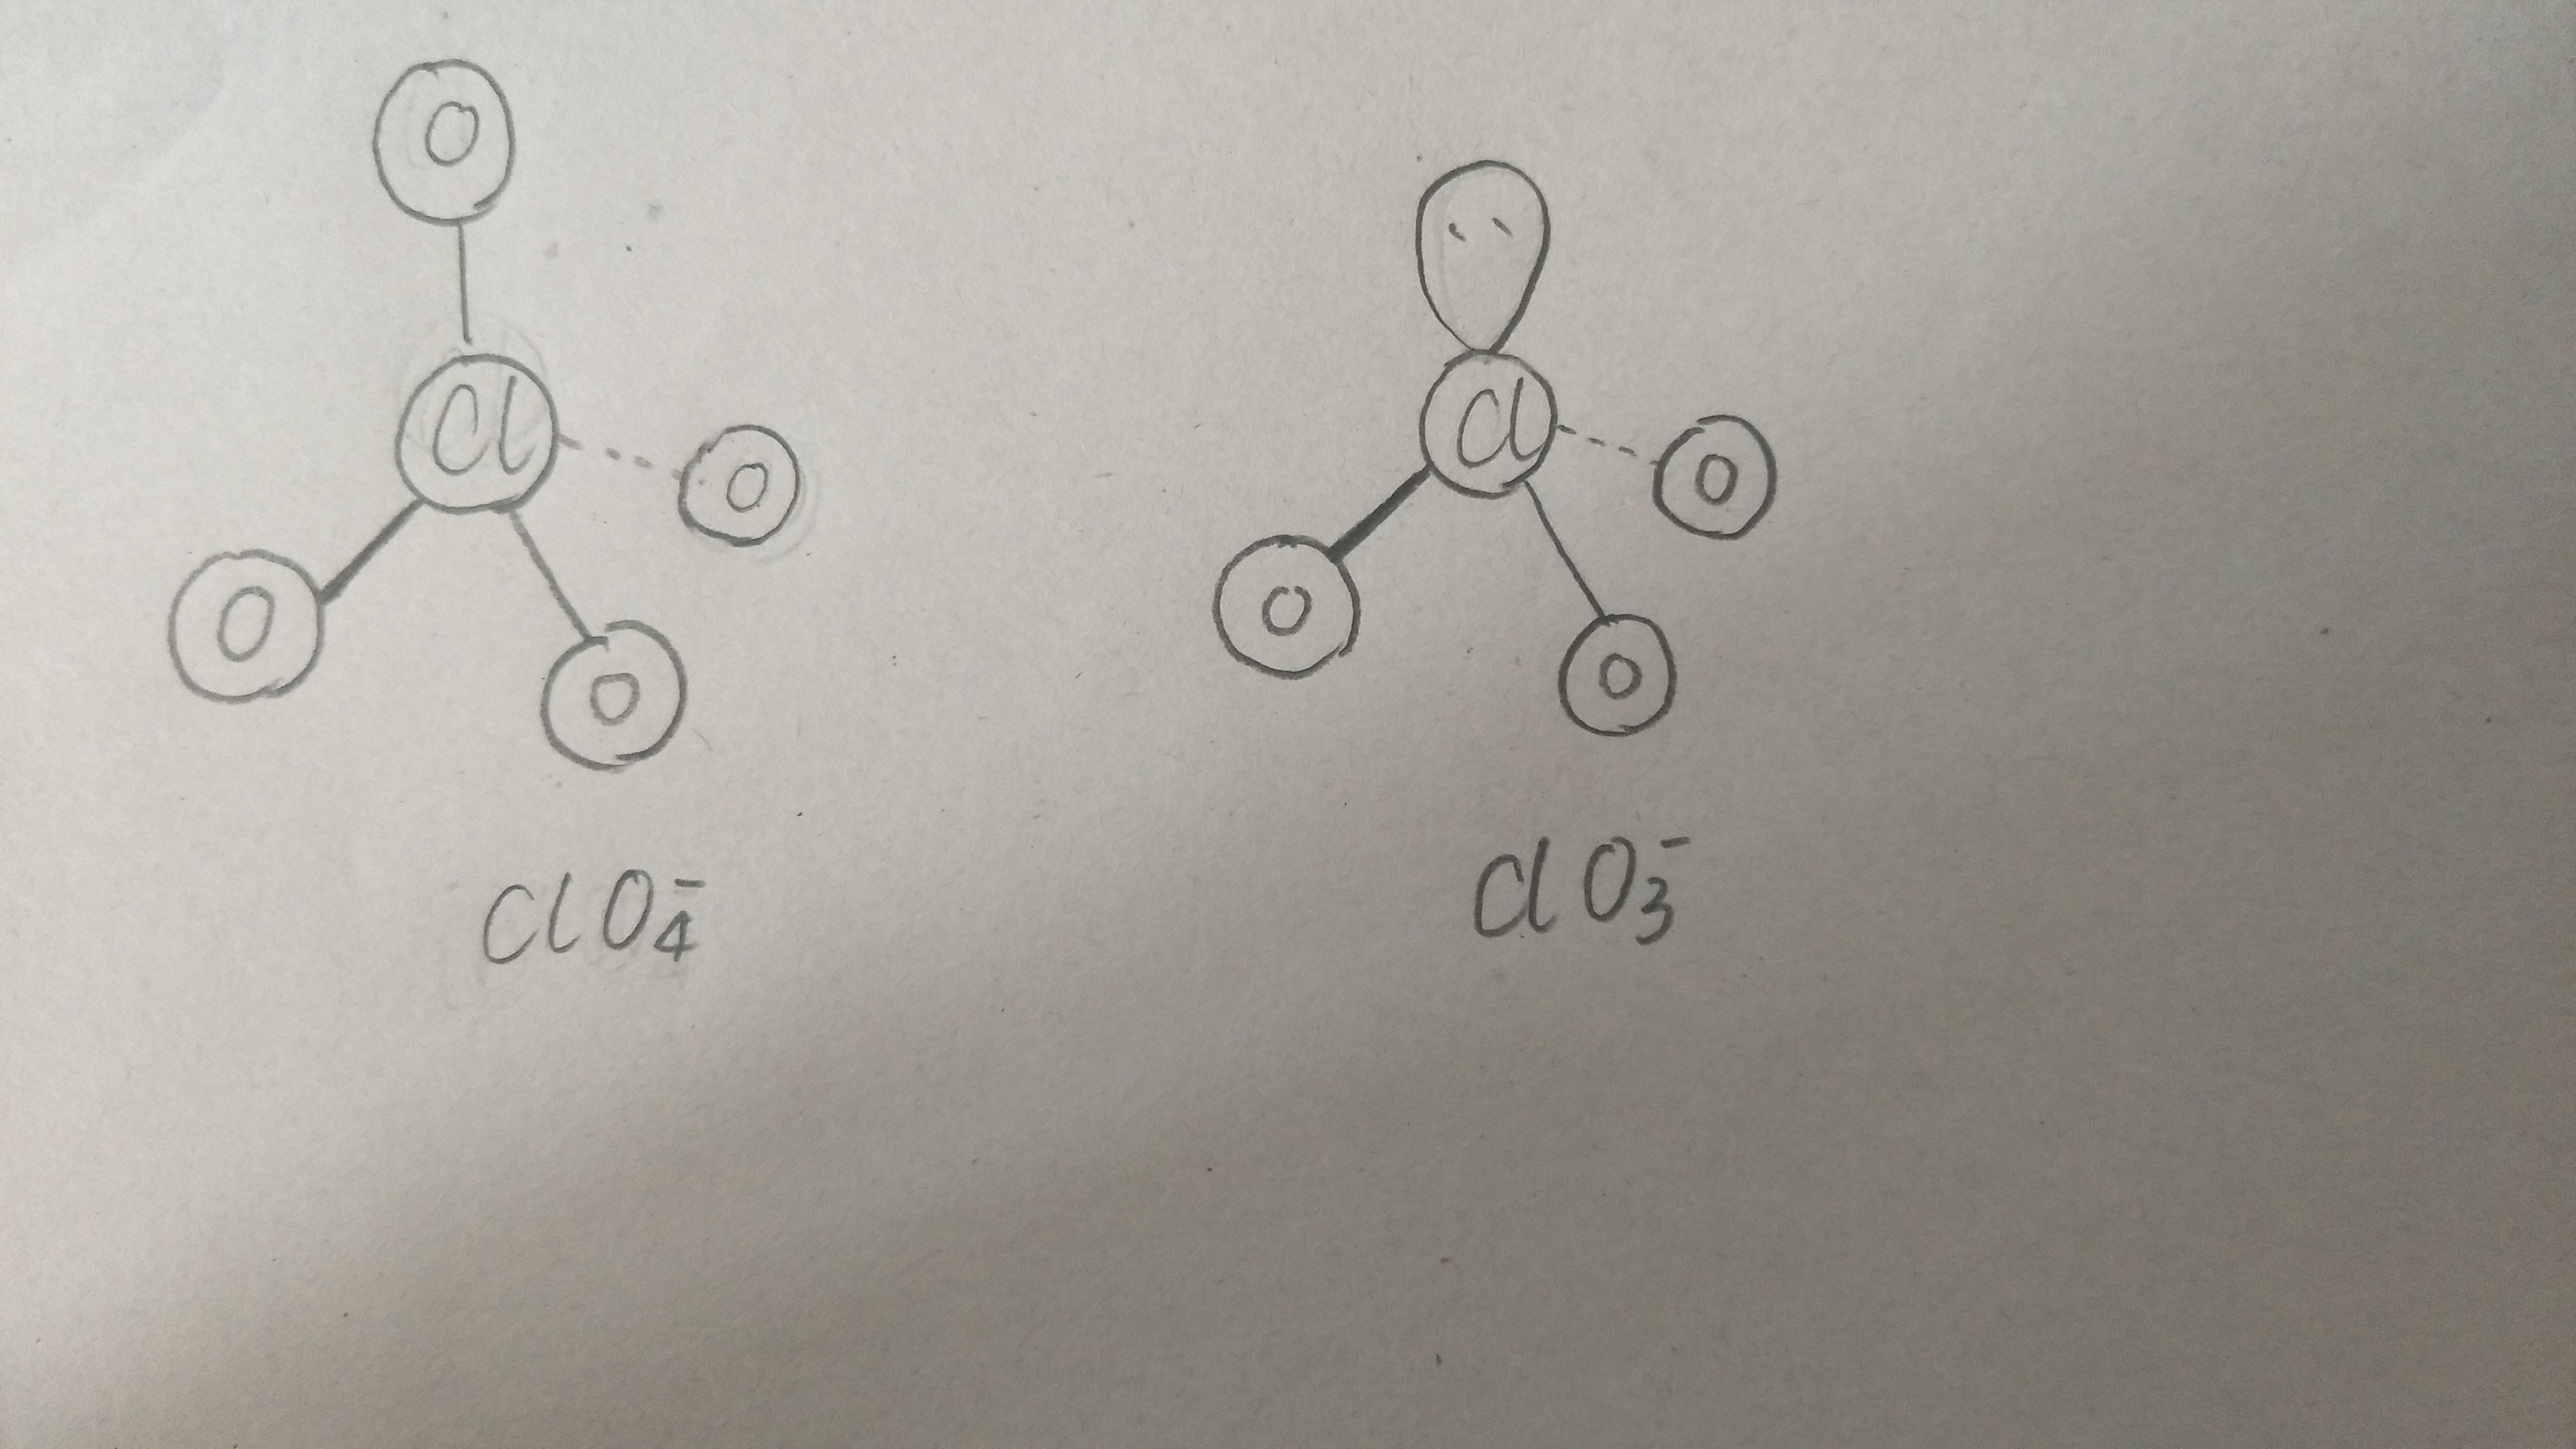 O
Cl
O
O
O
ClO₄⁻
Cl
O
O
O
ClO₃⁻